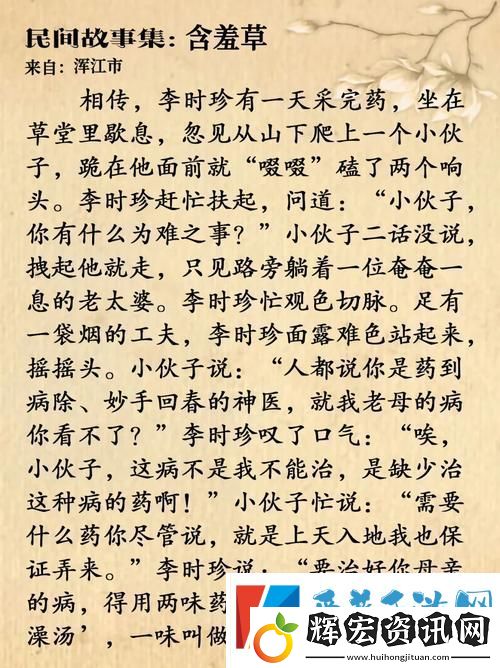 民间故事集：含羞草
来自：浑江市
相传，李时珍有一天采完药，坐在
草堂里歇息，忽见从山下爬上一个小伙
子，跪在他面前就“啜啜”磕了两个响
头。李时珍赶忙扶起，问道：“小伙子，
你有什么为难之事？”小伙子二话没说，
拽起他就走，只见路旁躺着一位奄奄一
息的老太婆。李时珍忙观色切脉。足有
一袋烟的工夫，李时珍面露难色站起来，
摇摇头。小伙子说：“人都说你是药到
病除、妙手回春的神医，就我老母的病
你看不了？”李时珍叹了口气：“唉，
小伙子，这病不是我不能治，是缺少治
这种病的药啊！”小伙子忙说：“需要
什么药你尽管说，就是上天入地我也保
证弄来。”李时珍说：“要治好你母亲
的病，得用两味药
澡汤’，一味叫做
辉宏资讯网
www.huihongjituan.com